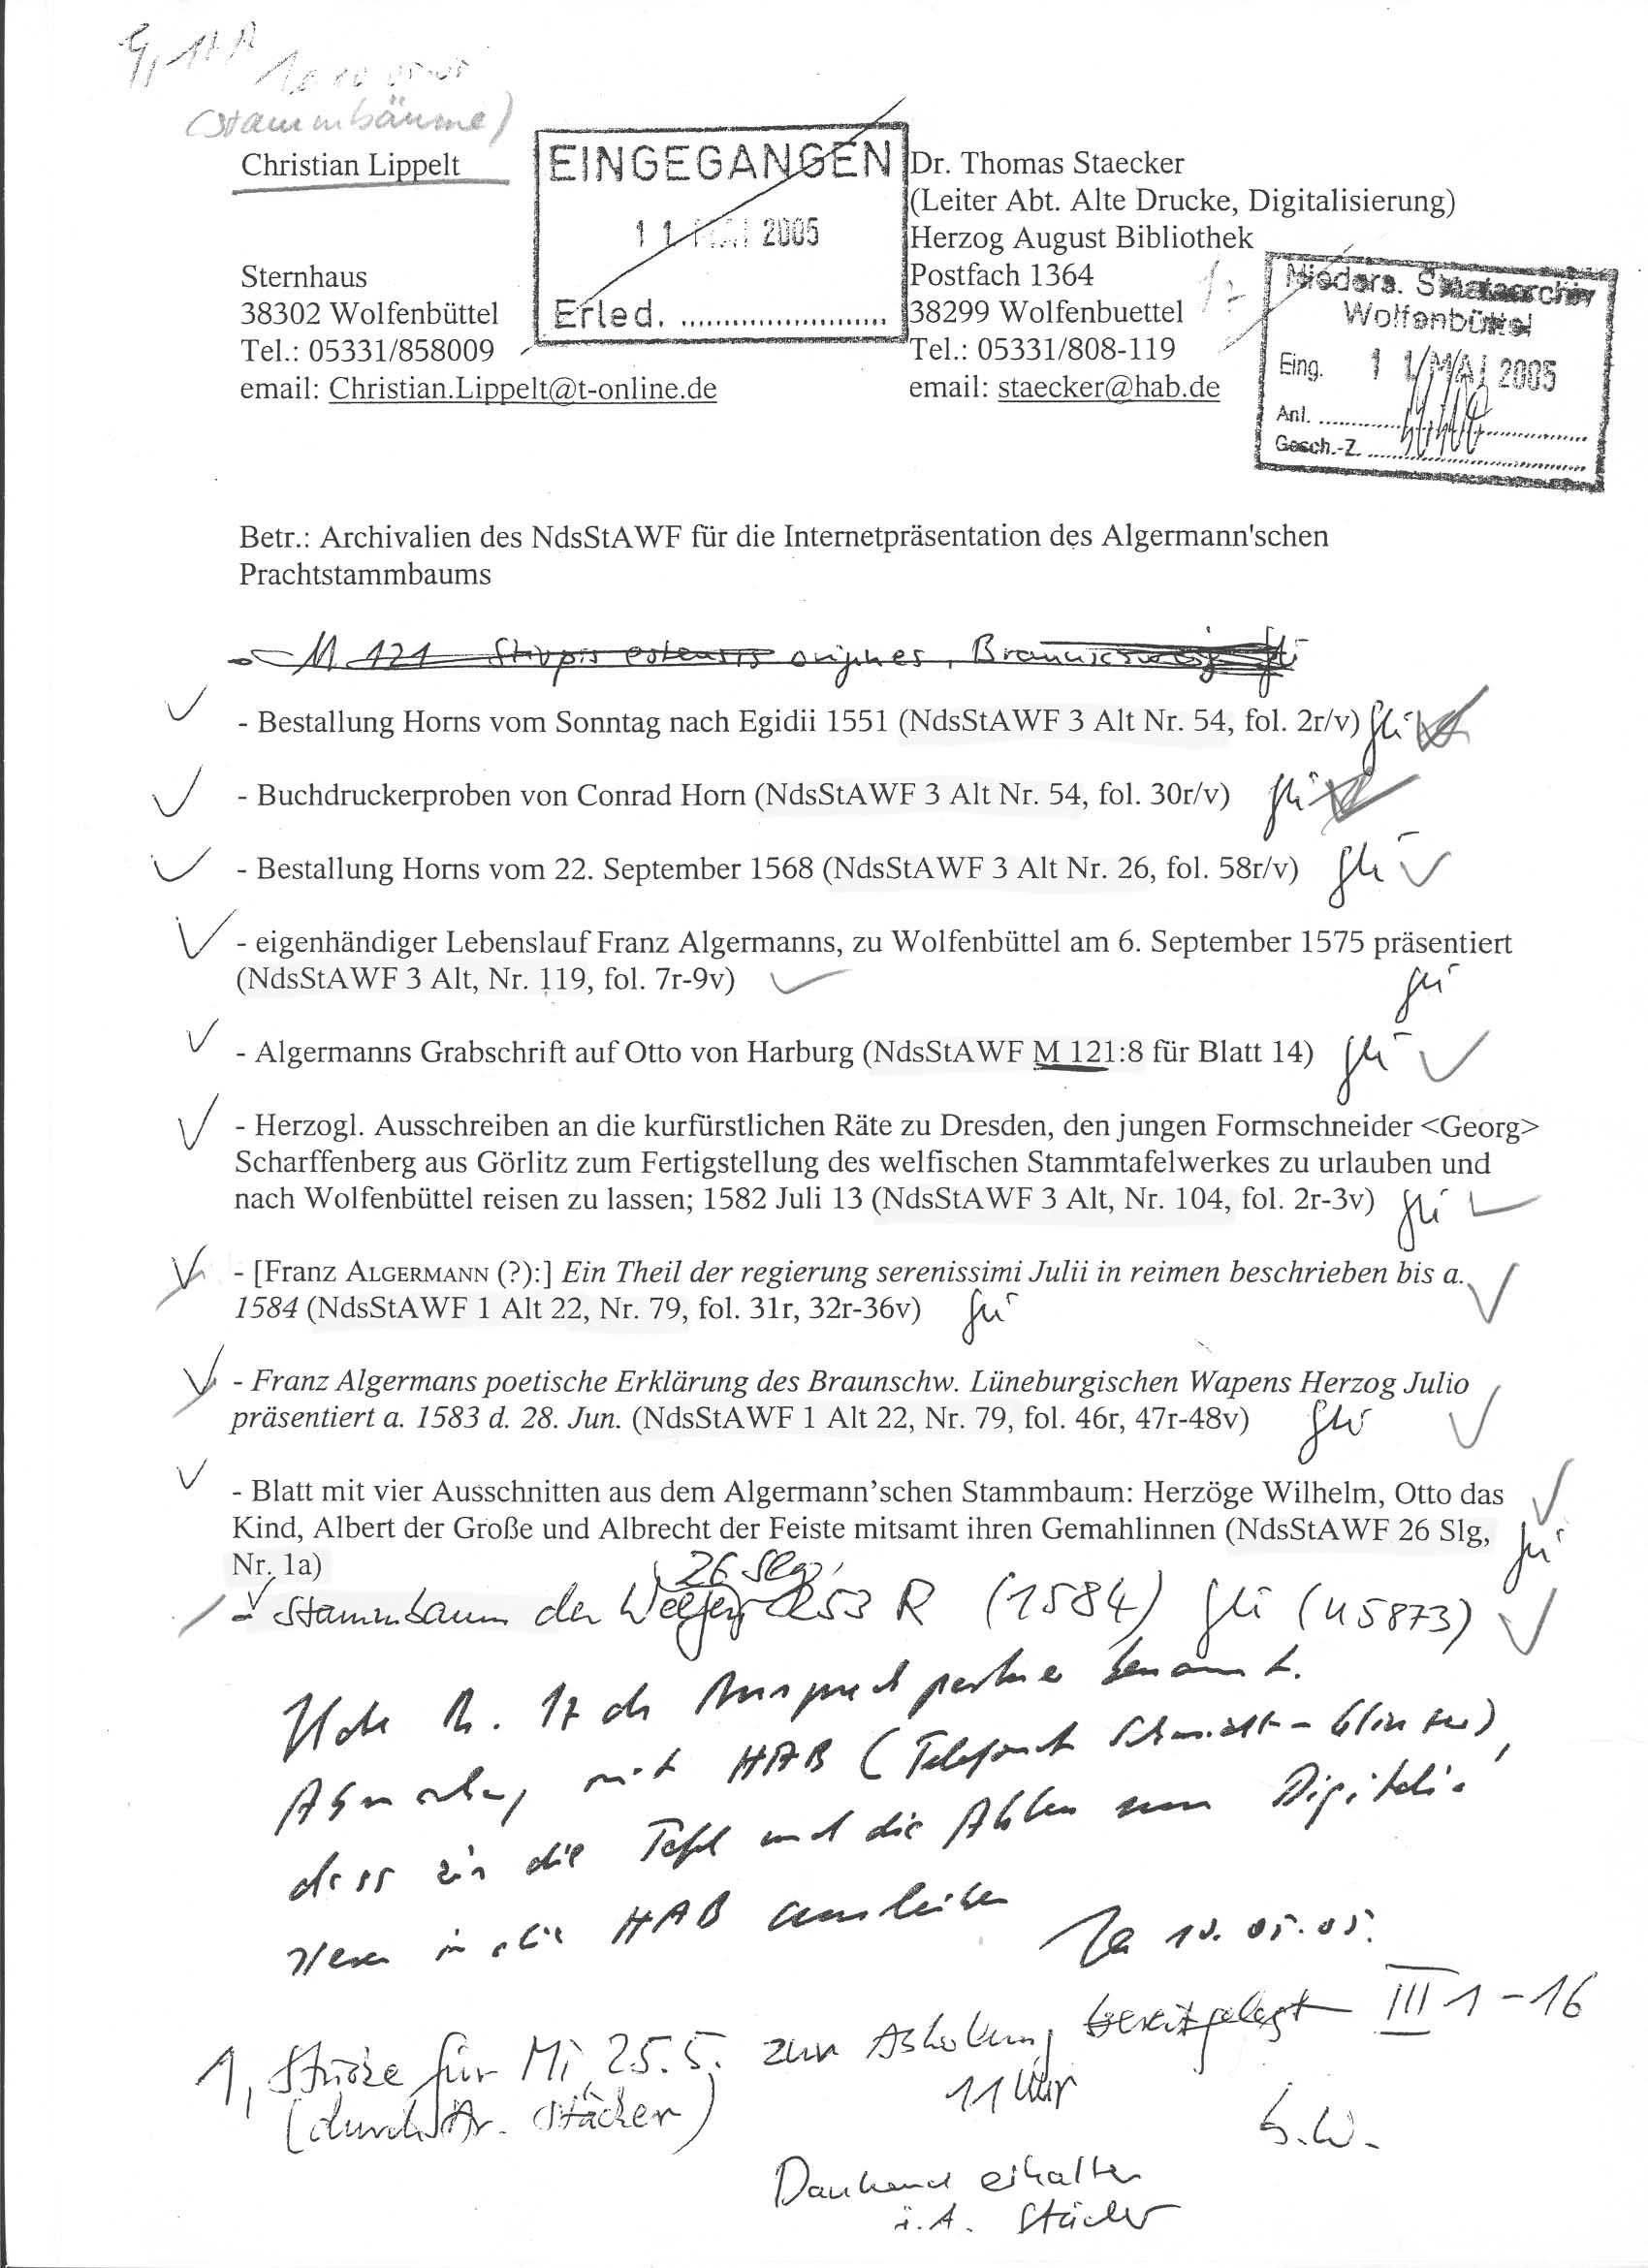 (Stammbäume)
Christian Lippelt
Sternhaus
38302 Wolfenbüttel
Tel.: 05331/858009
email: Christian.Lippelt@t-online.de
EINGEGANGEN
11. MAI 2005
Erled. ........................
Dr. Thomas Staecker
(Leiter Abt. Alte Drucke, Digitalisierung)
Herzog August Bibliothek
Postfach 1364
38299 Wolfenbuettel
Tel.: 05331/808-119
email: staecker@hab.de
Nieders. Staatsarchiv
Wolfenbüttel
Eing. 11. MAI 2005
Anl.
Gesch.-Z.
Betr.: Archivalien des NdsStAWF für die Internetpräsentation des Algermann'schen
Prachtstammbaums
M 121 Stirpis estensis origines,
- Bestallung Horns vom Sonntag nach Egidii 1551 (NdsStAWF 3 Alt Nr. 54, fol. 2r/v)
- Buchdruckerproben von Conrad Horn (NdsStAWF 3 Alt Nr. 54, fol. 30r/v)
- Bestallung Horns vom 22. September 1568 (NdsStAWF 3 Alt Nr. 26, fol. 58r/v)
- eigenhändiger Lebenslauf Franz Algermanns, zu Wolfenbüttel am 6. September 1575 präsentiert
(NdsStAWF 3 Alt, Nr. 119, fol. 7r-9v)
- Algermanns Grabschrift auf Otto von Harburg (NdsStAWF M 121:8 für Blatt 14)
- Herzogl. Ausschreiben an die kurfürstlichen Räte zu Dresden, den jungen Formschneider <Georg>
Scharffenberg aus Görlitz zum Fertigstellung des welfischen Stammtafelwerkes zu urlauben und
nach Wolfenbüttel reisen zu lassen; 1582 Juli 13 (NdsStAWF 3 Alt, Nr. 104, fol. 2r-3v)
- [Franz ALGERMANN (?):] Ein Theil der regierung serenissimi Julii in reimen beschrieben bis a.
1584 (NdsStAWF 1 Alt 22, Nr. 79, fol. 31r, 32r-36v)
- Franz Algermans poetische Erklärung des Braunschw. Lüneburgischen Wapens Herzog Julio
präsentiert a. 1583 d. 28. Jun. (NdsStAWF 1 Alt 22, Nr. 79, fol. 46r, 47r-48v)
- Blatt mit vier Ausschnitten aus dem Algermann’schen Stammbaum: Herzöge Wilhelm, Otto das
Kind, Albert der Große und Albrecht der Feiste mitsamt ihren Gemahlinnen (NdsStAWF 26 Slg,
Nr. 1a)
26 Slg,
- Stammbaum der Welfen 253 R (1584) (45873)
Ansprechpartner benannt.
mit HAB (Telefonat Schmidt-Glintzer),
dass wir die Tafel und die Akten zum Digitali-
sieren in die HAB ausleihen
10.05.05.
1, Stücke für Mi, 25.5. zur Abholung bereitgelegt III 1-16
11 Uhr
(durch Dr. Stäcker)
Dankend erhalten
i.A. Stäcker